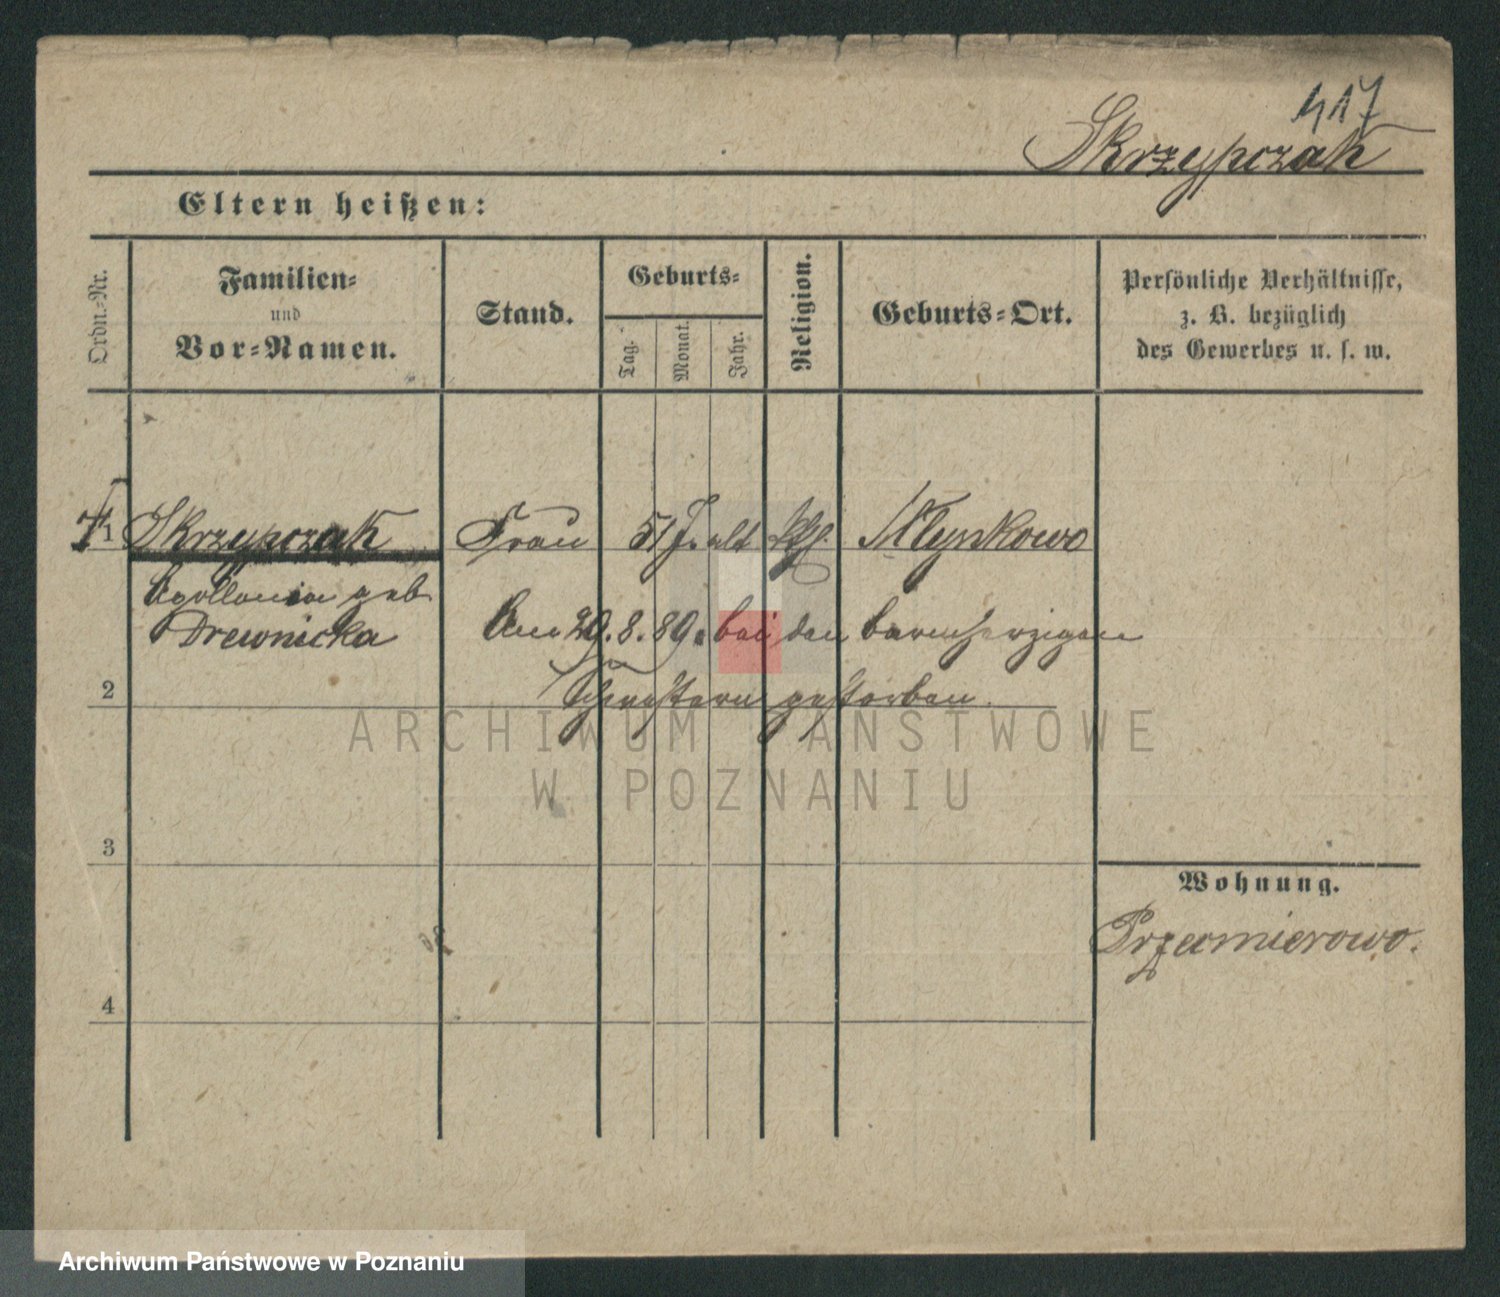 417
Skrzypczak
Eltern heißen:
Ordn.-Nr.
Familien-
und
Vor-Namen.
Stand.
Geburts-
Tag.
Monat.
Jahr.
Religion.
Geburts-Ort.
Persönliche Verhältnisse,
z. B. bezüglich
des Gewerbes u. s. w.
1 Skrzypczak Frau 51 J. alt kth. Mlynkowo
Apollonia geb.
Drewnicka
Am 29.8.89. bei den barmherzigen
2 Schwestern gestorben.
ARCHIWUM PAŃSTWOWE
W POZNANIU
3
Wohnung.
Przezmierowo.
4
Archiwum Państwowe w Poznaniu